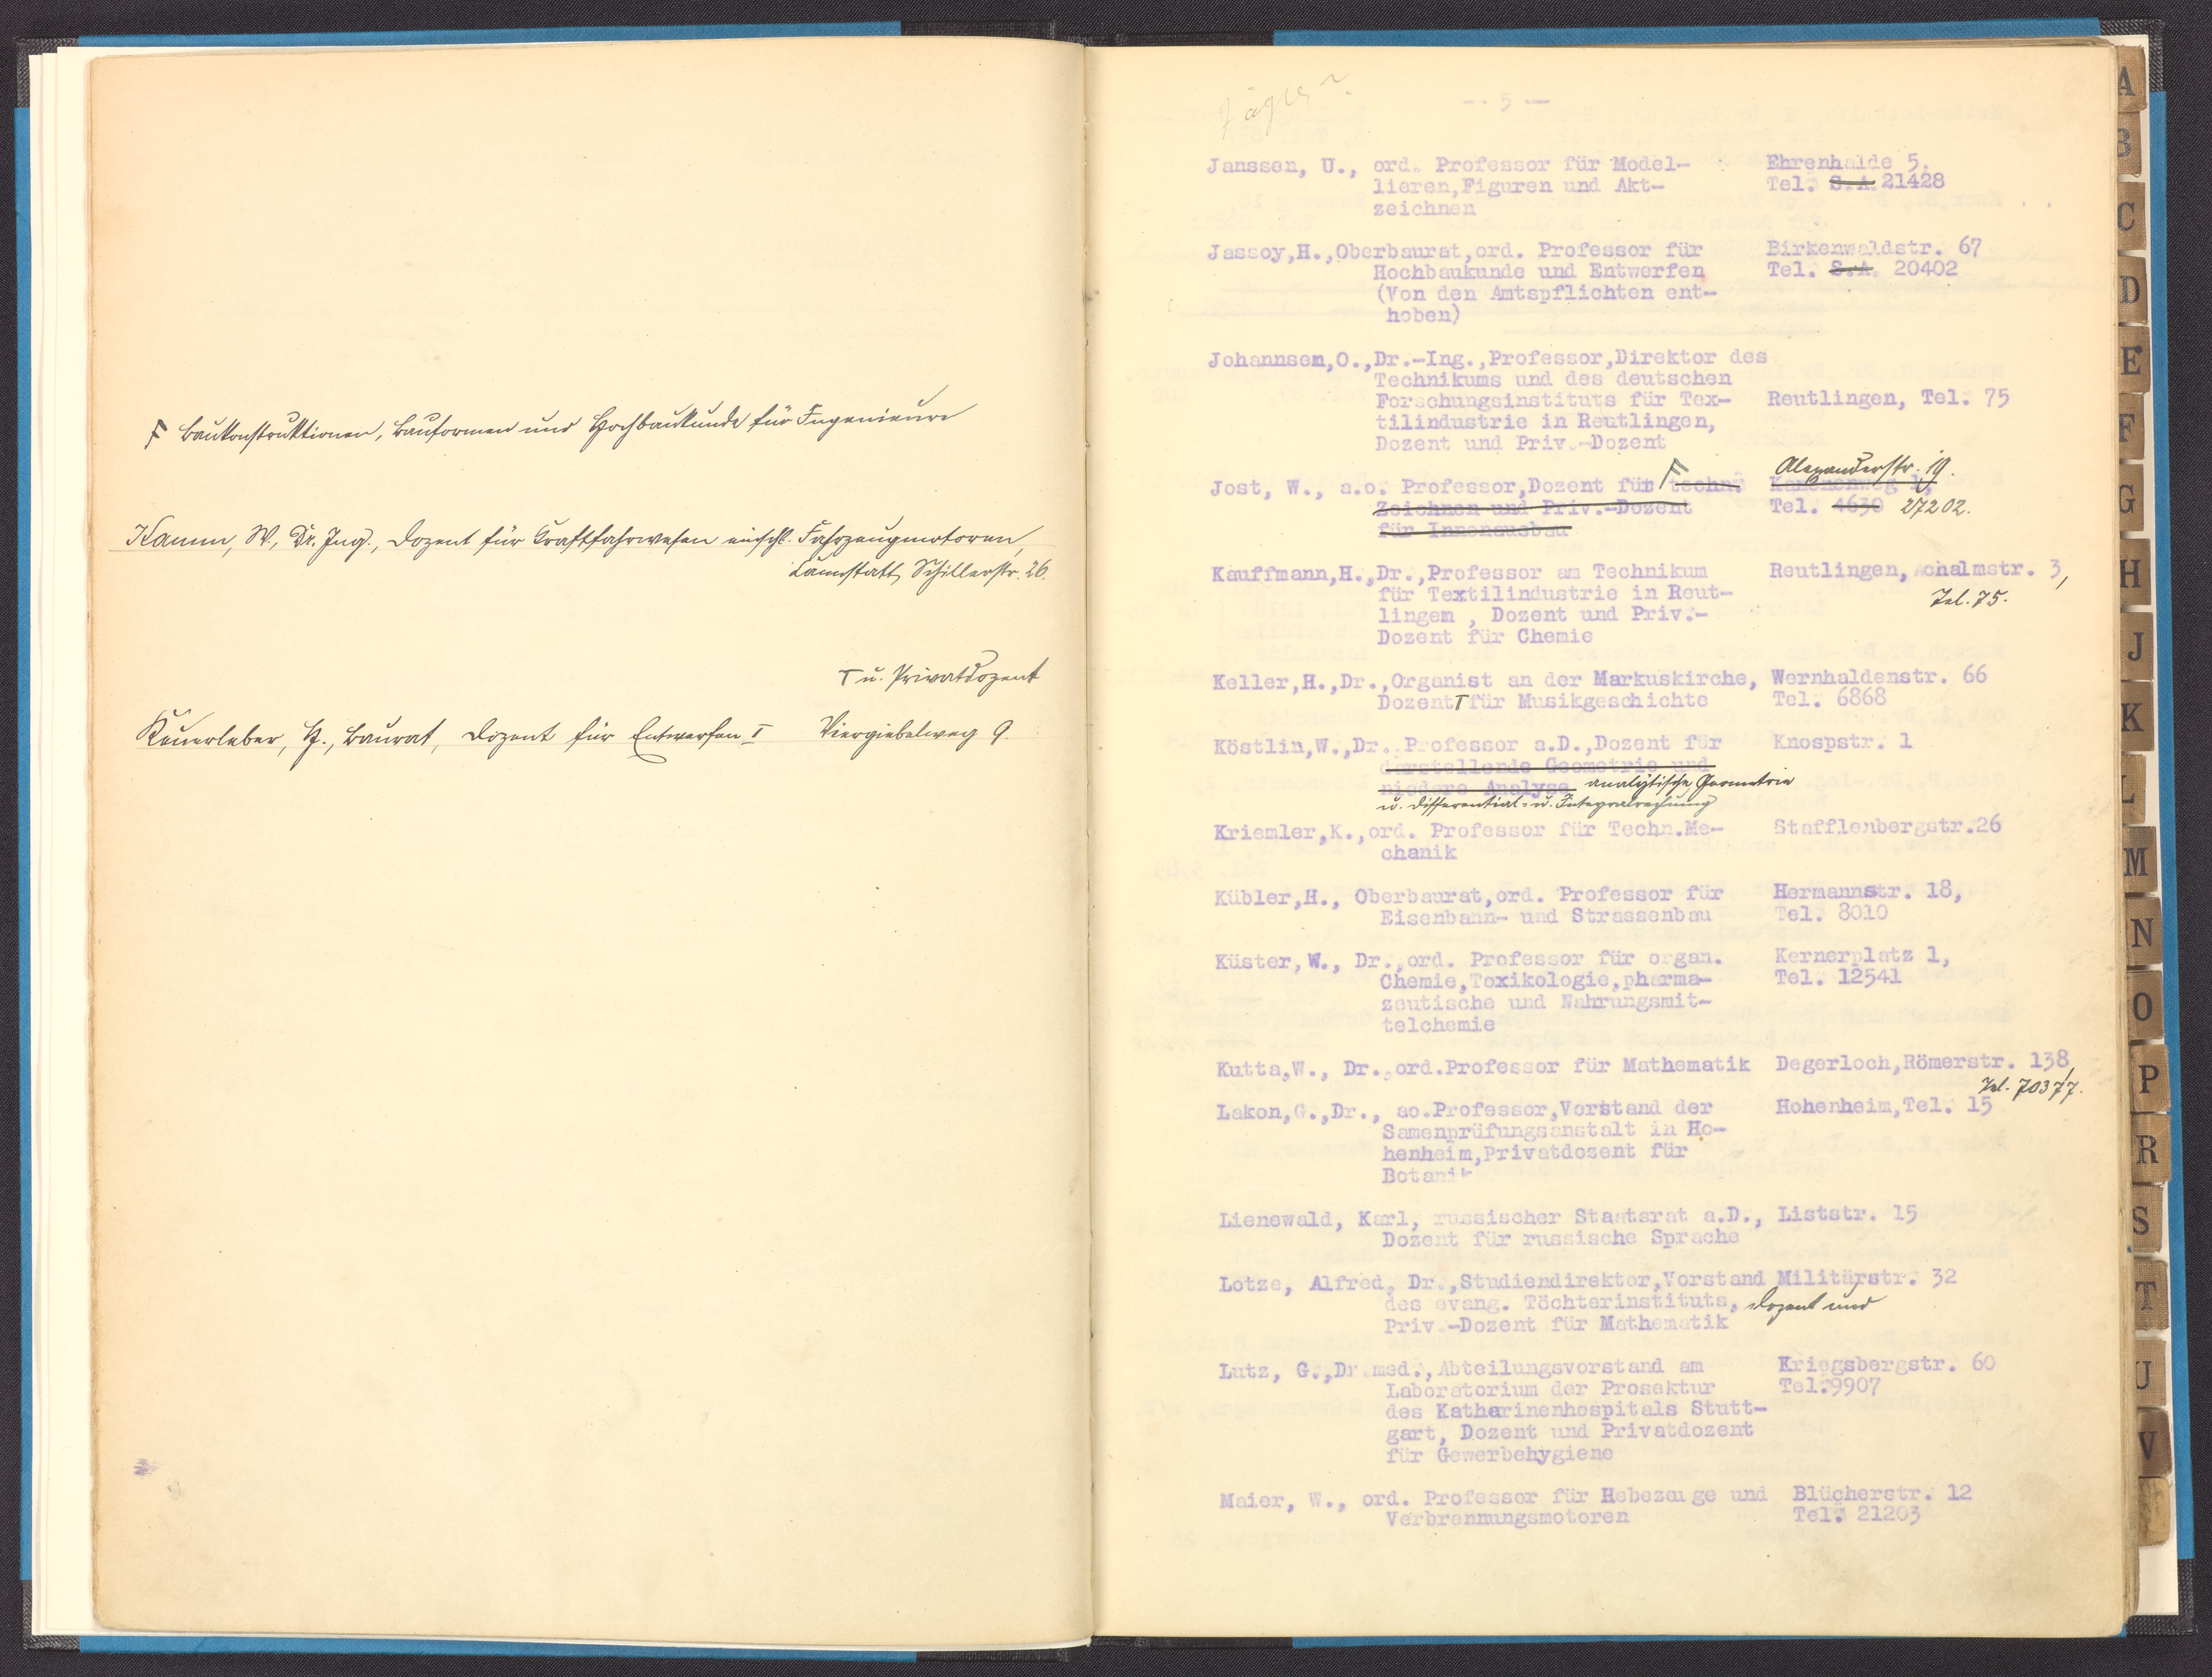 F Baukonstruktionen, Bauformen und Hochbaukunde für Ingenieure
Kamm, W., Dr. Ing., Dozent für Kraftfahrwesen einschl. Fahrzeugmotoren,
Cannstatt, Schillerstr. 26.
T u. Privatdozent
Keuerleber, H., Baurat, Dozent für Entwerfen I Viergiebelweg 9.
-- 5 --
Janssen, U., ord. Professor für Model- Ehrenhalde 5.
lieren,Figuren und Akt- Tel. S.A. 21428
zeichnen
Jassoy,H.,Oberbaurat,ord. Professor für Birkenwaldstr. 67
Hochbaukunde und Entwerfen Tel. S.A. 20402
(Von den Amtspflichten ent-
hoben)
Johannsen,O.,Dr.-Ing.,Professor,Direktor des
Technikums und des deutschen
Forschungsinstituts für Tex- Reutlingen, Tel. 75
tilindustrie in Reutlingen,
Dozent und Priv.-Dozent
Alexanderstr. 19.
Jost, W., a.o. Professor,Dozent für F techn. Kanonenweg 1,
Zeichnen und Priv.-Dozent Tel. 4630 27202.
für Innenausbau
Kauffmann,H.,Dr.,Professor am Technikum Reutlingen, Achalmstr. 3,
für Textilindustrie in Reut- Tel. 75.
lingen , Dozent und Priv.-
Dozent für Chemie
Keller,H.,Dr.,Organist an der Markuskirche, Wernhaldenstr. 66
Dozent T für Musikgeschichte Tel. 6868
Köstlin,W.,Dr. Professor a.D.,Dozent für Knospstr. 1
darstellende Geometrie und
niedere Analyse analytische Geometrie
u. Differential- u. Integralrechnung
Kriemler,K.,ord. Professor für Techn.Me- Stafflenbergstr.26
chanik
Kübler,H., Oberbaurat,ord. Professor für Hermannstr. 18,
Eisenbahn- und Strassenbau Tel. 8010
Küster,W., Dr.,ord. Professor für organ. Kernerplatz 1,
Chemie,Toxikologie,pharma- Tel. 12541
zeutische und Nahrungsmit-
telchemie
Kutta,W., Dr.,ord.Professor für Mathematik Degerloch,Römerstr. 138,
Tel. 70377.
Lakon,G.,Dr., ao.Professor,Vorstand der Hohenheim,Tel. 15
Samenprüfungsanstalt in Ho-
henheim,Privatdozent für
Botanik
Lienewald, Karl, russischer Staatsrat a.D., Liststr. 15
Dozent für russische Sprache
Lotze, Alfred, Dr.,Studiendirektor,Vorstand Militärstr. 32
des evang. Töchterinstituts, Dozent und
Priv.-Dozent für Mathematik
Lutz, G.,Dr.med.,Abteilungsvorstand am Kriegsbergstr. 60
Laboratorium der Prosektur Tel.9907
des Katharinenhospitals Stutt-
gart, Dozent und Privatdozent
für Gewerbehygiene
Maier, W., ord. Professor für Hebezeuge und Blücherstr. 12
Verbrennungsmotoren Tel. 21203
A
B
C
D
E
F
G
H
J
K
L
M
N
O
P
R
S
T
U
V